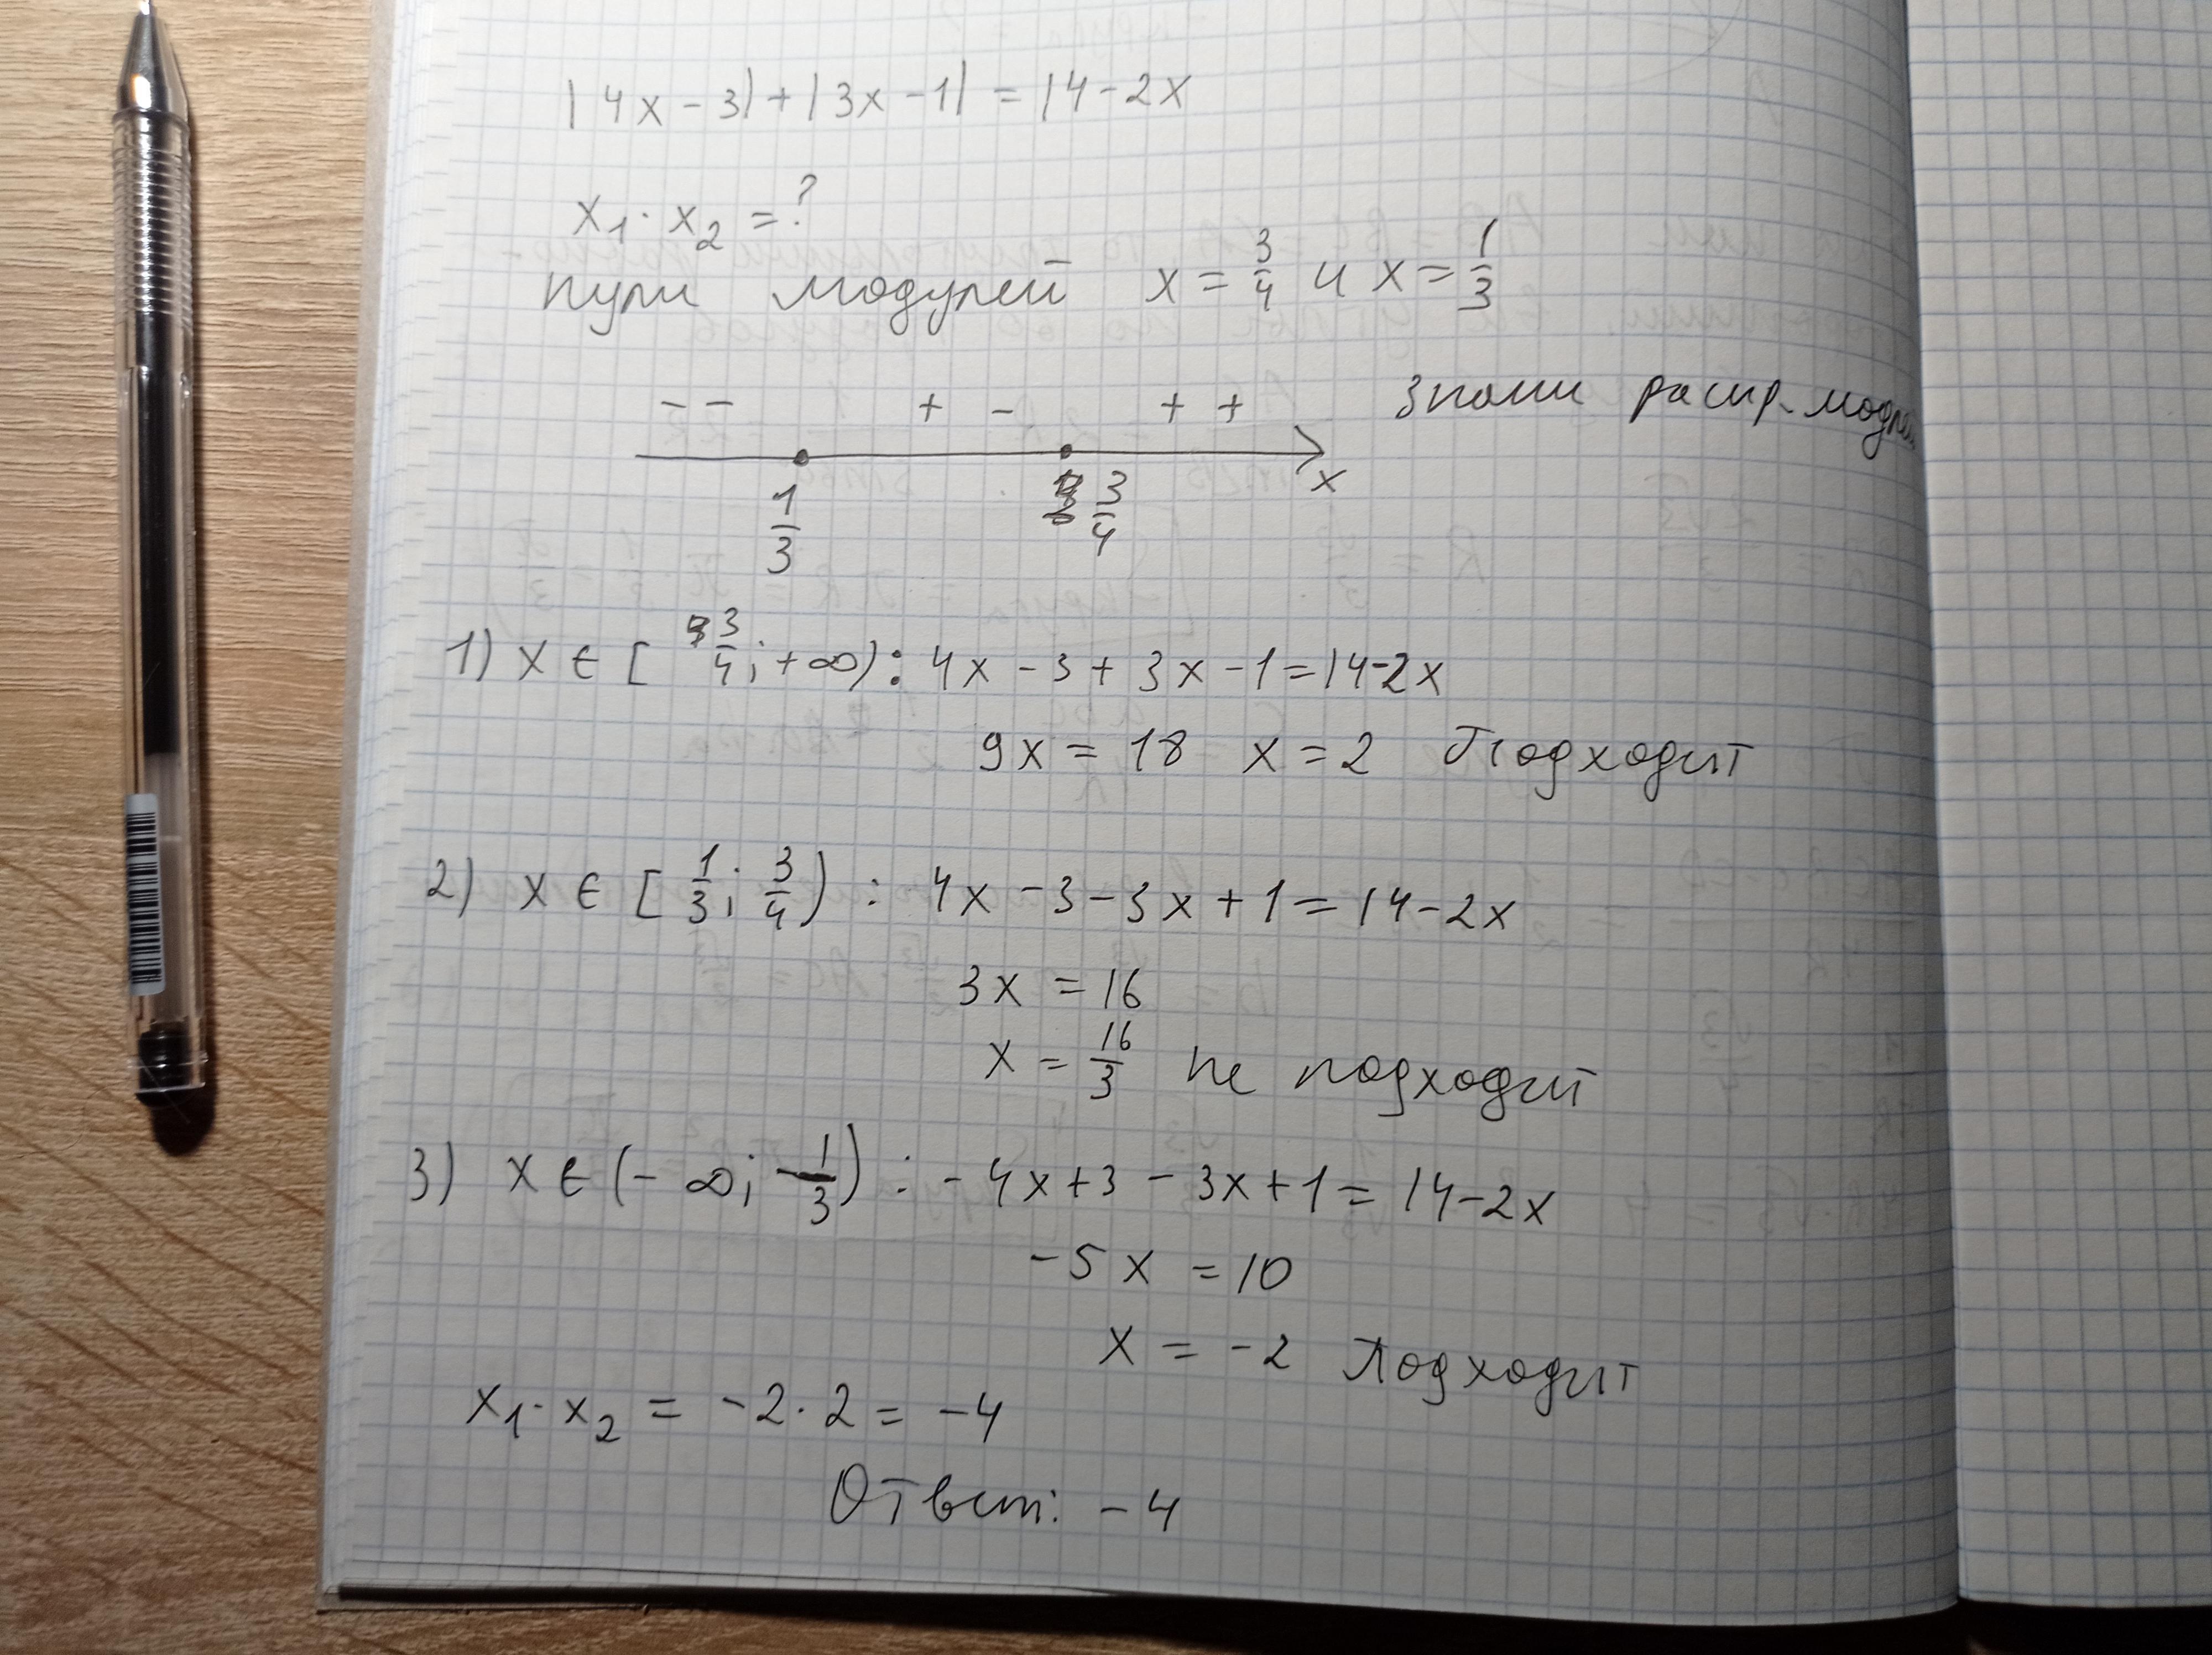 |4x - 3| + |3x - 1| = 14 - 2x
x₁ · x₂ = ?
нули модулей x = 3/4 и x = 1/3
- - + - + + знаки раскр. модулей
1/3 3/4 x
1) x ∈ [3/4; +∞): 4x - 3 + 3x - 1 = 14 - 2x
9x = 18 x = 2 Подходит
2) x ∈ [1/3; 3/4) : 4x - 3 - 3x + 1 = 14 - 2x
3x = 16
x = 16/3 не подходит
3) x ∈ (-∞; 1/3) : -4x + 3 - 3x + 1 = 14 - 2x
-5x = 10
x = -2 Подходит
x₁ · x₂ = -2 · 2 = -4
Ответ: -4